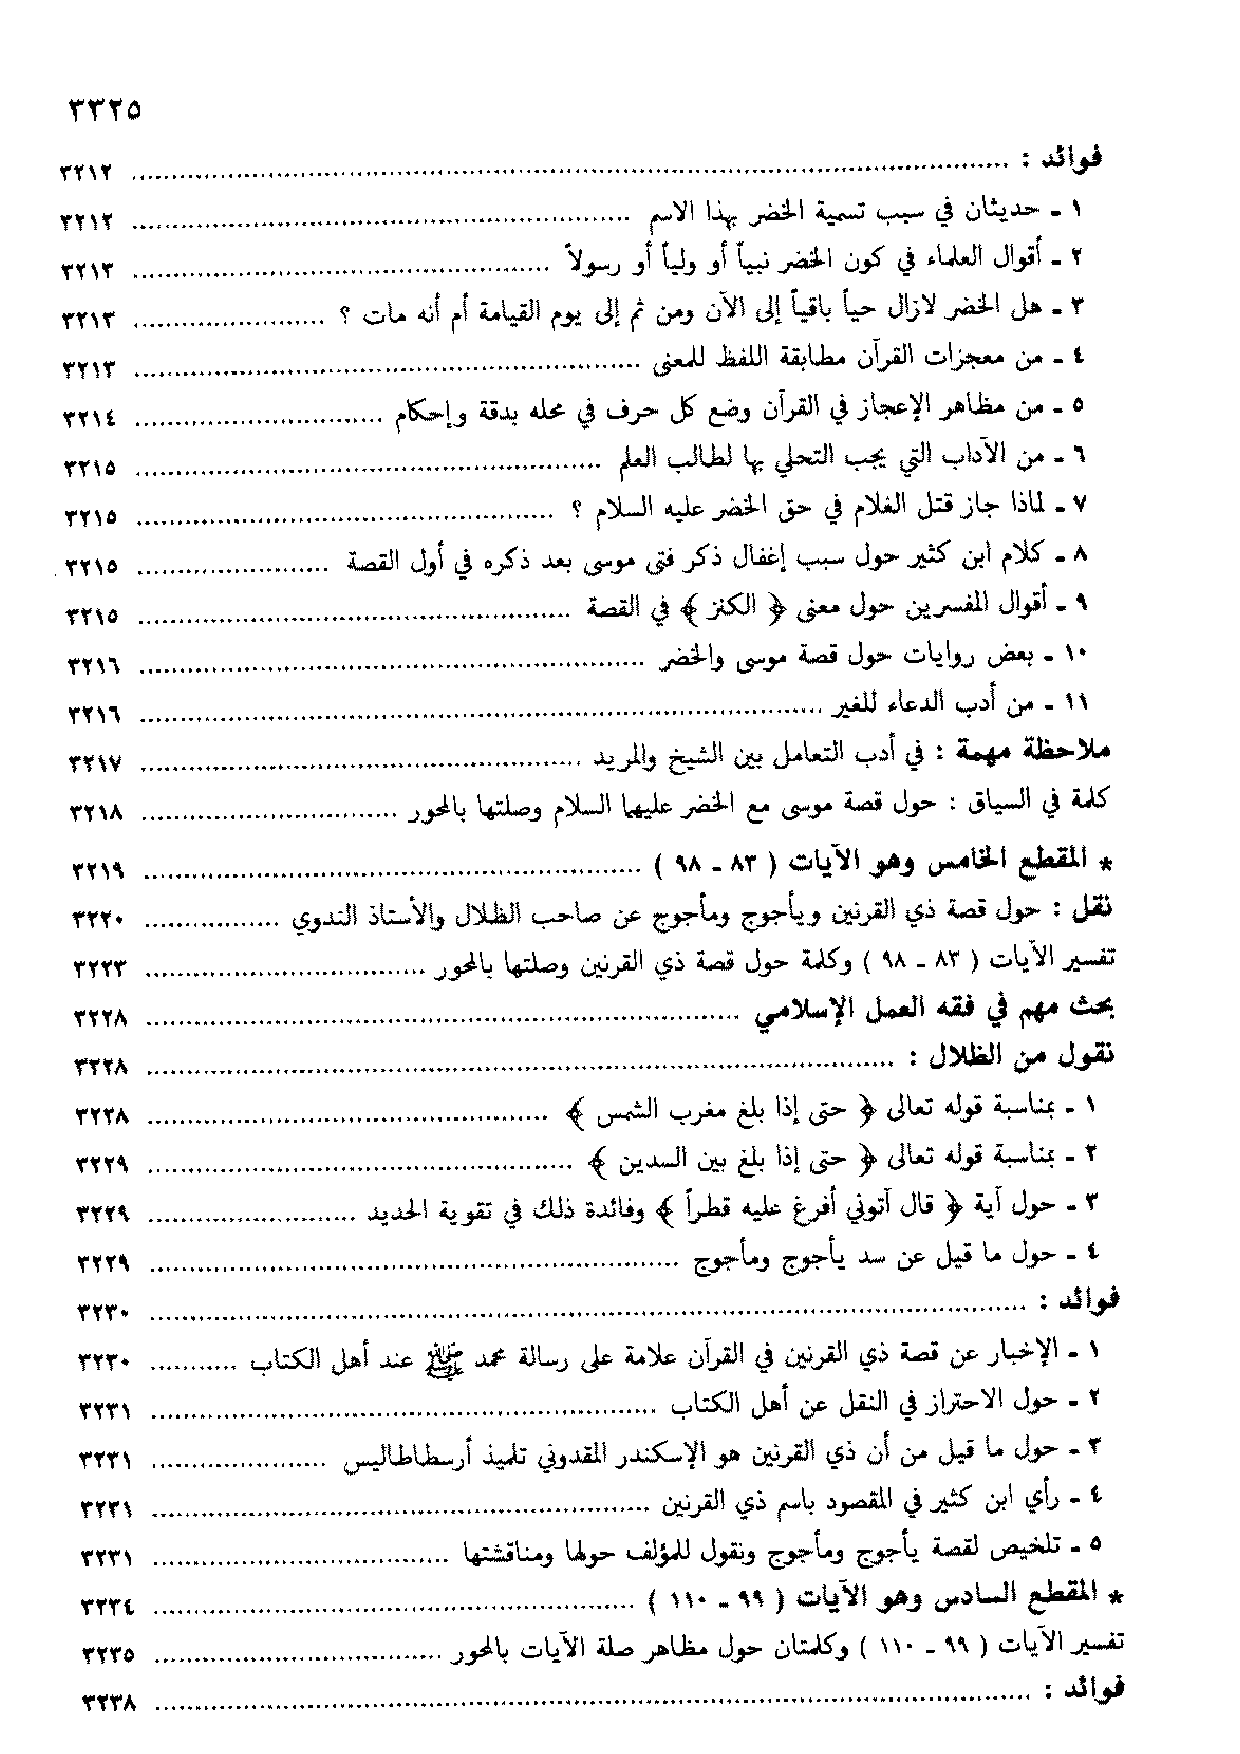 ٣٣٢٥
فوائد : ........ ٣٢١٢
١ - حديثان في سبب تسمية الخضر بهذا الاسم ........ ٣٢١٢
٢ - أقوال العلماء في كون الخضر نبياً أو ولياً أو رسولاً ........ ٣٢١٣
٣ - هل الخضر لازال حياً باقياً إلى الآن ومن ثم إلى يوم القيامة أم أنه مات ؟ ........ ٣٢١٣
٤ - من معجزات القرآن مطابقة اللفظ للمعنى ........ ٣٢١٣
٥ - من مظاهر الإعجاز في القرآن وضع كل حرف في محله بدقة وإحكام ........ ٣٢١٤
٦ - من الآداب التي يجب التحلي بها لطالب العلم ........ ٣٢١٥
٧ - لماذا جاز قتل الغلام في حق الخضر عليه السلام ؟ ........ ٣٢١٥
٨ - كلام ابن كثير حول سبب إغفال ذكر فتى موسى بعد ذكره في أول القصة ........ ٣٢١٥
٩ - أقوال المفسرين حول معنى ﴿ الكنز ﴾ في القصة ........ ٣٢١٥
١٠ - بعض روايات حول قصة موسى والخضر ........ ٣٢١٦
١١ - من أدب الدعاء للغير ........ ٣٢١٦
ملاحظة مهمة : في أدب التعامل بين الشيخ والمريد ........ ٣٢١٧
كلمة في السياق : حول قصة موسى مع الخضر عليهما السلام وصلتها بالمحور ........ ٣٢١٨
* المقطع الخامس وهو الآيات ( ٨٣ - ٩٨ ) ........ ٣٢١٩
نقل : حول قصة ذي القرنين ويأجوج ومأجوج عن صاحب الظلال والأستاذ الندوي ........ ٣٢٢٠
تفسير الآيات ( ٨٣ - ٩٨ ) وكلمة حول قصة ذي القرنين وصلتها بالمحور ........ ٣٢٢٣
بحث مهم في فقه العمل الإسلامي ........ ٣٢٢٨
نقول من الظلال : ........ ٣٢٢٨
١ - بمناسبة قوله تعالى ﴿ حتى إذا بلغ مغرب الشمس ﴾ ........ ٣٢٢٨
٢ - بمناسبة قوله تعالى ﴿ حتى إذا بلغ بين السدين ﴾ ........ ٣٢٢٩
٣ - حول آية ﴿ قال آتوني أفرغ عليه قطراً ﴾ وفائدة ذلك في تقوية الحديد ........ ٣٢٢٩
٤ - حول ما قيل عن سد يأجوج ومأجوج ........ ٣٢٢٩
فوائد : ........ ٣٢٣٠
١ - الإخبار عن قصة ذي القرنين في القرآن علامة على رسالة محمد ﷺ عند أهل الكتاب ........ ٣٢٣٠
٢ - حول الاحتراز في النقل عن أهل الكتاب ........ ٣٢٣١
٣ - حول ما قيل من أن ذي القرنين هو الإسكندر المقدوني تلميذ أرسطاطاليس ........ ٣٢٣١
٤ - رأي ابن كثير في المقصود باسم ذي القرنين ........ ٣٢٣١
٥ - تلخيص لقصة يأجوج ومأجوج ونقول للمؤلف حولها ومناقشتها ........ ٣٢٣١
* المقطع السادس وهو الآيات ( ٩٩ - ١١٠ ) ........ ٣٢٣٤
تفسير الآيات ( ٩٩ - ١١٠ ) وكلمتان حول مظاهر صلة الآيات بالمحور ........ ٣٢٣٥
فوائد : ........ ٣٢٣٨